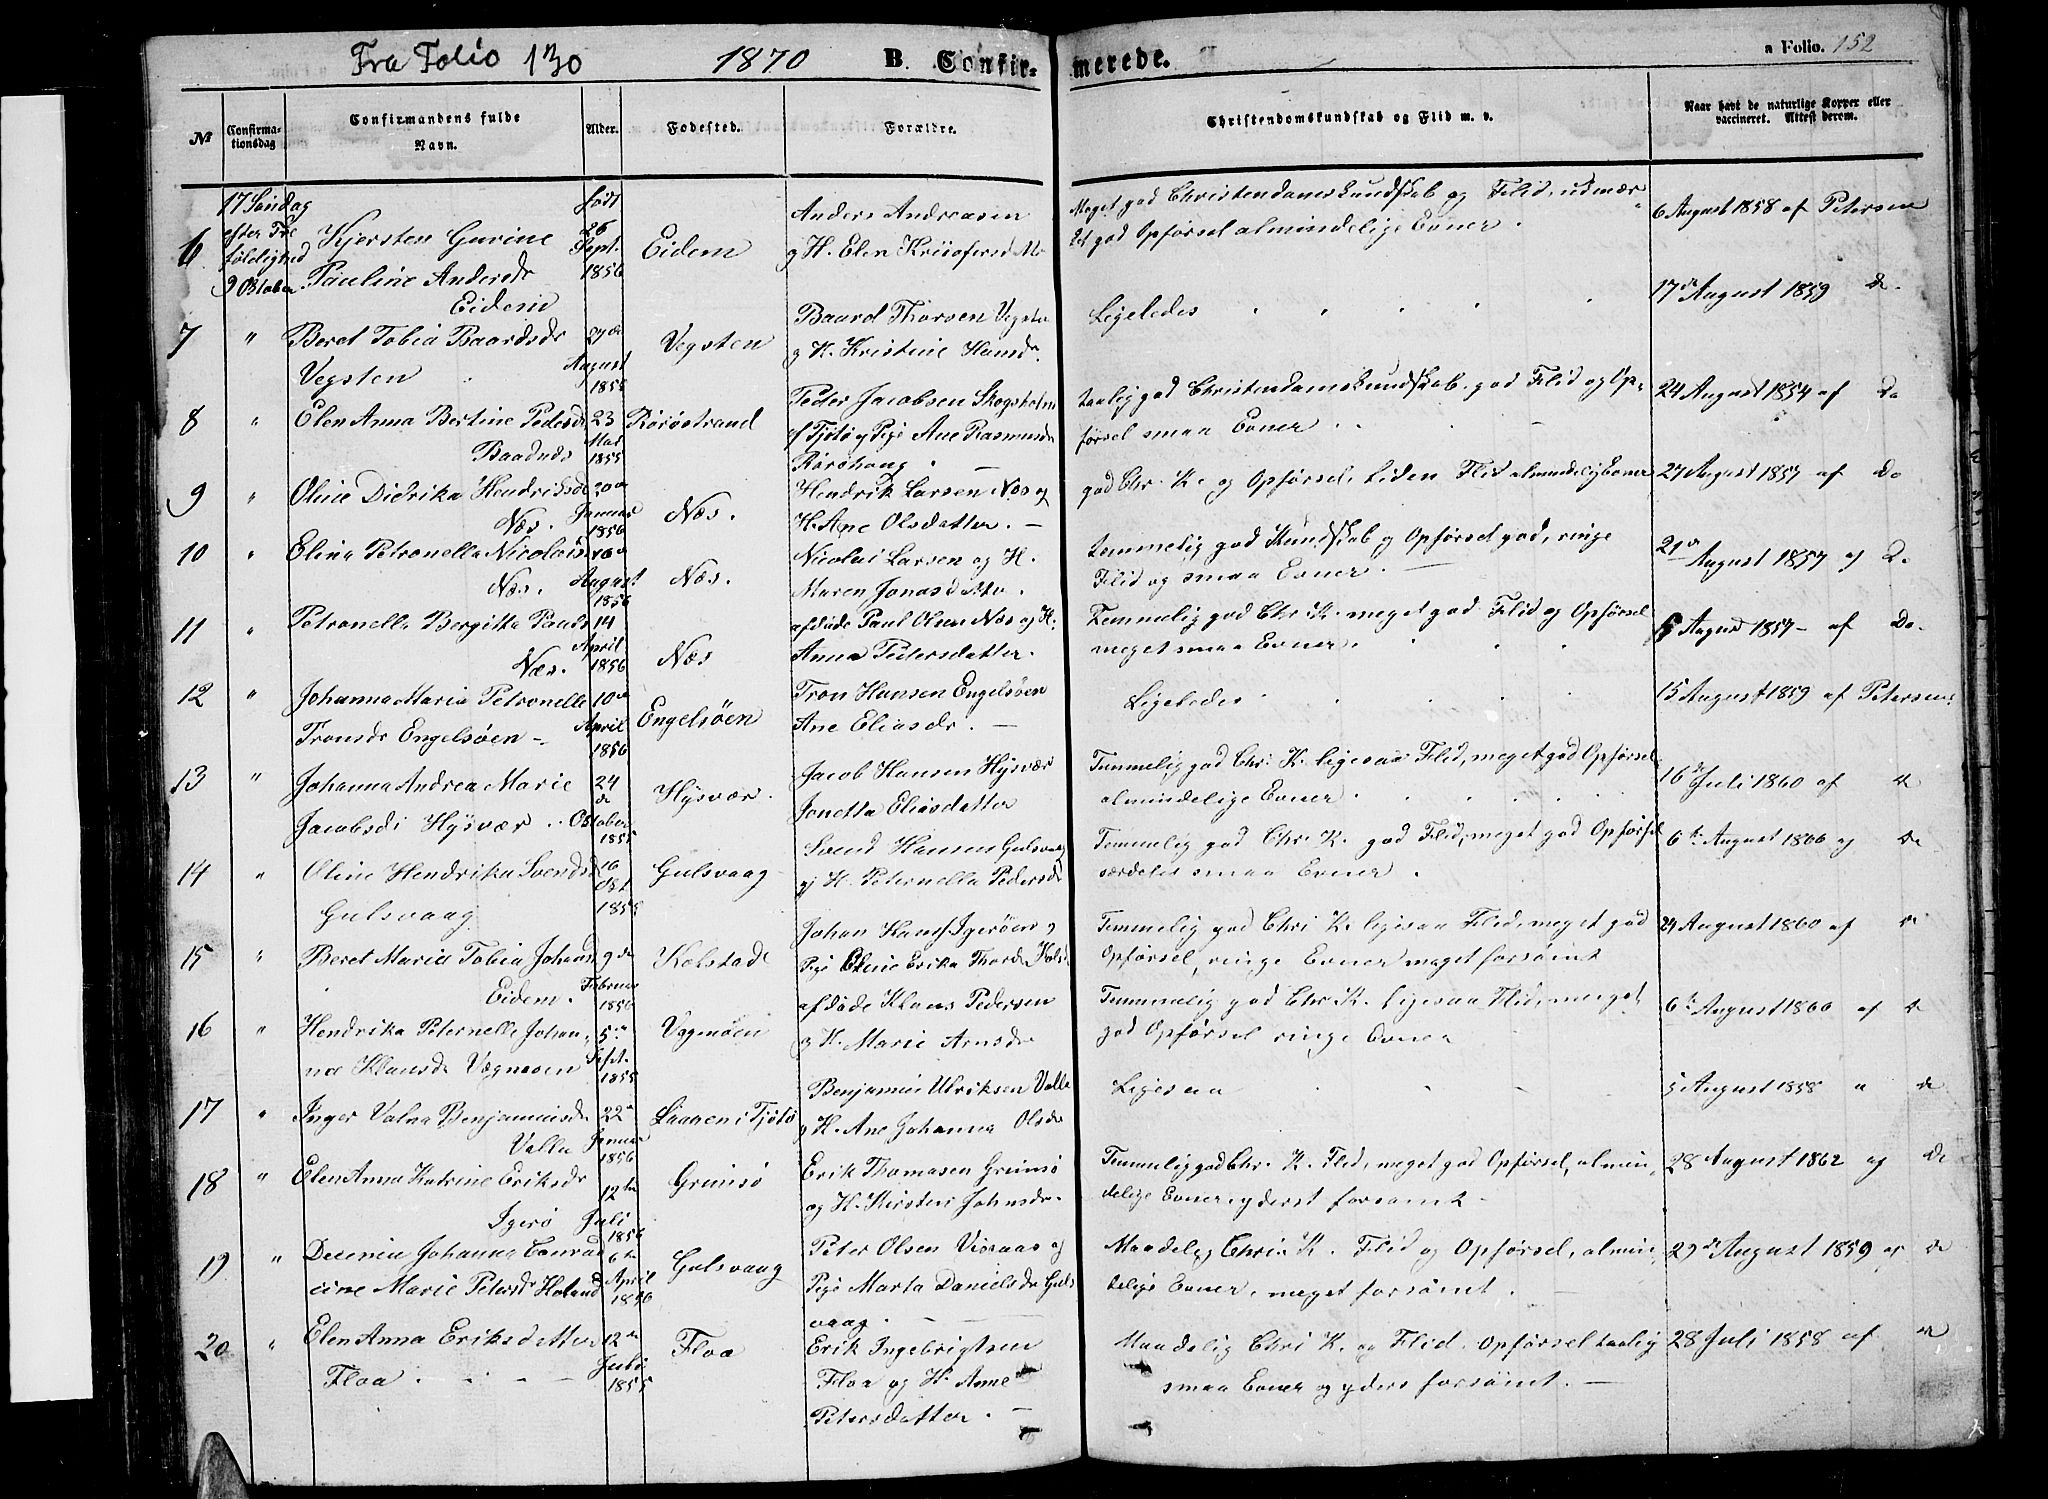 Fra Folio 130 1870 B. Confirmerede. a Folio. 152
№ Confirmationsdag Confirmandens fulde Navn. Alder. Fodested. Forældre. Christendomskundskab og Flid m. v. Naar havt de naturlige Kopper eller vaccineret. Attest derom.
17 Søndag efter Trefoldighed 9 Oktober
født
6 Kjersten Gurine Pauline Andersdr Eidem 26 Sept. 1856 Eidem Anders Andreasen g H. Elen Kristofersd Meget god Christendomskundskab og Flid, udmærket god Opførsel almindelige Evner. 6 August 1858 af Petersen
7 " Beret Tobia Baardsdr Vegsten 27de August 1855 Vegsten Baard Thorsen Vegsten g H. Kristine Hansdr. Ligeledes 17de August 1859 do.
8 " Elen Anna Bertine Pedersdr 23 Mai 1855 Röröstrand Peder Jacobsen Skogsholm af Tjøtø g Pige Ane Rasmusdr taalig god Christendomskundskab. god Flid og Opførsel smaa Evner. 24 August 1857 af Do
9 " Oline Didrika Hendriksdr Næs. 20de Januar 1856 Næs. Hendrik Larsen Næs og H. Ane Olsdatter. god Chr. K. og Opførsel, liden Flid almindelig Evner 27 August 1857 af Do
10 " Elina Petronella Nicolais Næs. August 1856 Næs. Nicolai Larsen og H. Maren Jonasdatter. temmelig god Kundskab og Opførsel god, ringe Flid og smaa Evner. August 1857 af Do
11 " Petronella Bergitha Pauls Næs. 14 April 1856 Næs afdøde Paul Olsen Næs og H. Anna Pedersdatter. Temmelig god Chr K. meget god Flid og Opførsel meget smaa Evner. August 1857 af Do.
12 " Johanna Maria Petronelle Tronsdr Engelsöen 10de April 1856 Engelsöen Tron Hansen Engelsöen Ane Eliasdr. Ligeledes 15 August 1859 af Petersen
13 " Johanna Andrea Marie Jacobsdr Hysvær 24de Oktober 1855 Hysvær Jacob Hansen Hysvær Jonetta Eliasdatter Temmelig god Chr. K. ligesaa Flid, meget god Opførsel almindelige Evner. 16de Juli 1860 af do
14 " Oline Hendrika Svendsdr Gulsvaag 16 Okt 1855 Gulsvaag Svend Hansen Gulsvaag g H. Peternella Pedersdr Temmelig god Chr. K. god Flid, meget god Opførsel særdeles smaa Evner. 6te August 1860 af do
15 " Beret Maria Tobia Johansd Eidem. 9de Februar 1856 Kolstade Johan Hans Igerøen g Pige Oline Erika Thordr Kols Temmelig god Chri K. ligesaa Flid, meget god Opførsel, ringe Evner meget forsømt 24 August 1860 af do
16 " Hendrika Peternelle Johanna Klausdr Vægnøen 5te Sept. 1855 Vægnøen afdøde Klaus Pedersen g H. Marie Arnsdr Temmelig god Chr. K. ligesaa Flid, meget god Opførsel ringe Evner 6te August 1860 af do
17 " Inger Valna Benjaminsdr Valla 22de Januar 1856 Laanen i Tjøtø Benjamin Ulriksen Valla g H. Ane Johanna Olsdr Ligesaa 5 August 1858 do
18 " Elen Anna Katrine Eriksdr Igerø 12te Juli 1856 Grimsø Erik Thomasen Grimsø og H. Kirsten Johnsdr. Temmelig god Chr. K. Flid, meget god Opførsel, almindelige Evner yderst forsømt 28 August 1862 af do
19 " Johanna Conradine Marie Petersdr Holand 6te April 1856 Gulsvaag Peter Olsen g Pige Marta Danielsdr Gulsvaag. Maadelig Chri K. Flid og Opførsel, almindelige Evner, meget forsømt. 29de August 1859 af do
20 " Elen Anna Eriksdatter Floa 12te 1855 Floa Erik Ingebrigtsen Floa og H. Anne Petersdatter. Maadelig Chri K. og Flid, Opførsel taalig smaa Evner og yderst forsømt. 28 Juli 1858 af do